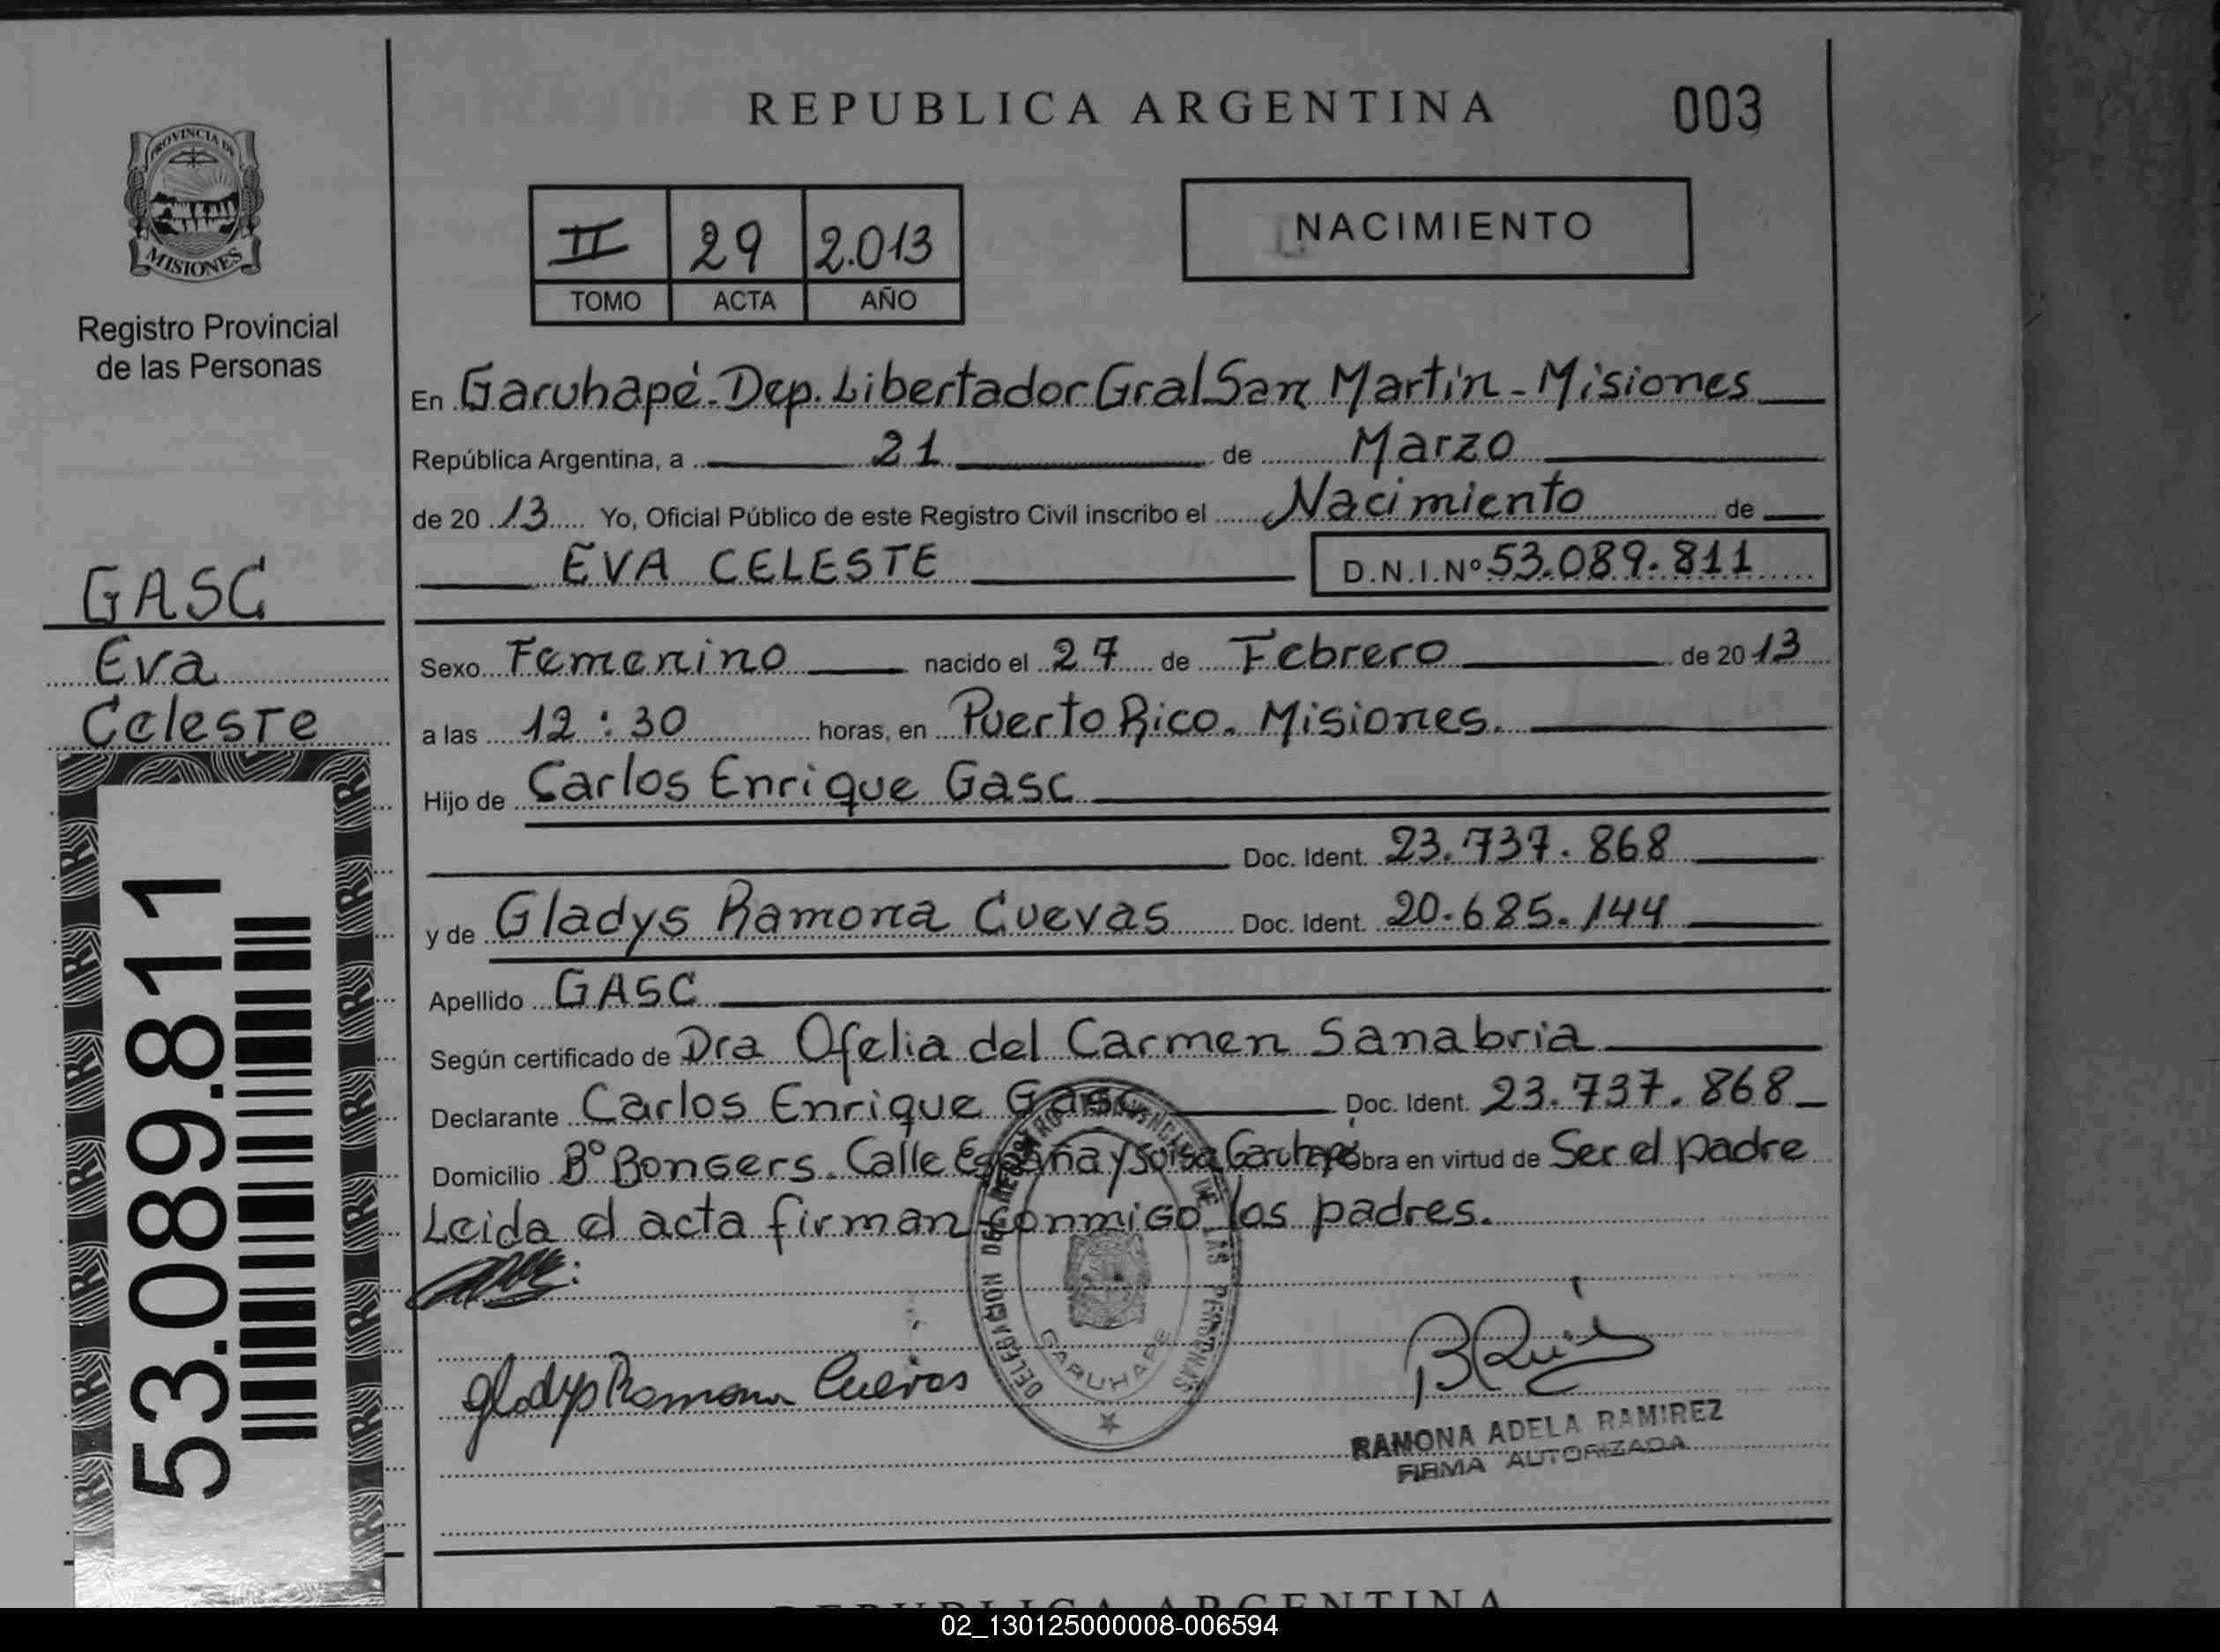 REPUBLICA ARGENTINA
003
PROVINCIA DE
MISIONES
Registro Provincial
de las Personas
II 29 2.013
TOMO ACTA AÑO
NACIMIENTO
En Garuhapé. Dep. Libertador Gral San Martín - Misiones
República Argentina, a 21 de Marzo
de 20 13 Yo, Oficial Público de este Registro Civil inscribo el Nacimiento de
EVA CELESTE D.N.I.Nº 53.089.811
GASC
Eva
Celeste
53.089.811
Sexo Femenino nacido el 27 de Febrero de 20 13
a las 12:30 horas, en Puerto Rico. Misiones.
Hijo de Carlos Enrique Gasc
Doc. Ident. 23.737.868
y de Gladys Ramona Cuevas Doc. Ident. 20.685.144
Apellido GASC
Según certificado de Dra Ofelia del Carmen Sanabria
Declarante Carlos Enrique Gasc Doc. Ident. 23.737.868
Domicilio Bº Bongers. Calle España y Garuhapé Obra en virtud de Ser el padre
Leida el acta firman conmigo los padres.
Gladys Ramona Cuevas
GARUHAPE
RAMONA ADELA RAMIREZ
FIRMA AUTORIZADA
REPUBLICA ARGENTINA
02_130125000008-006594